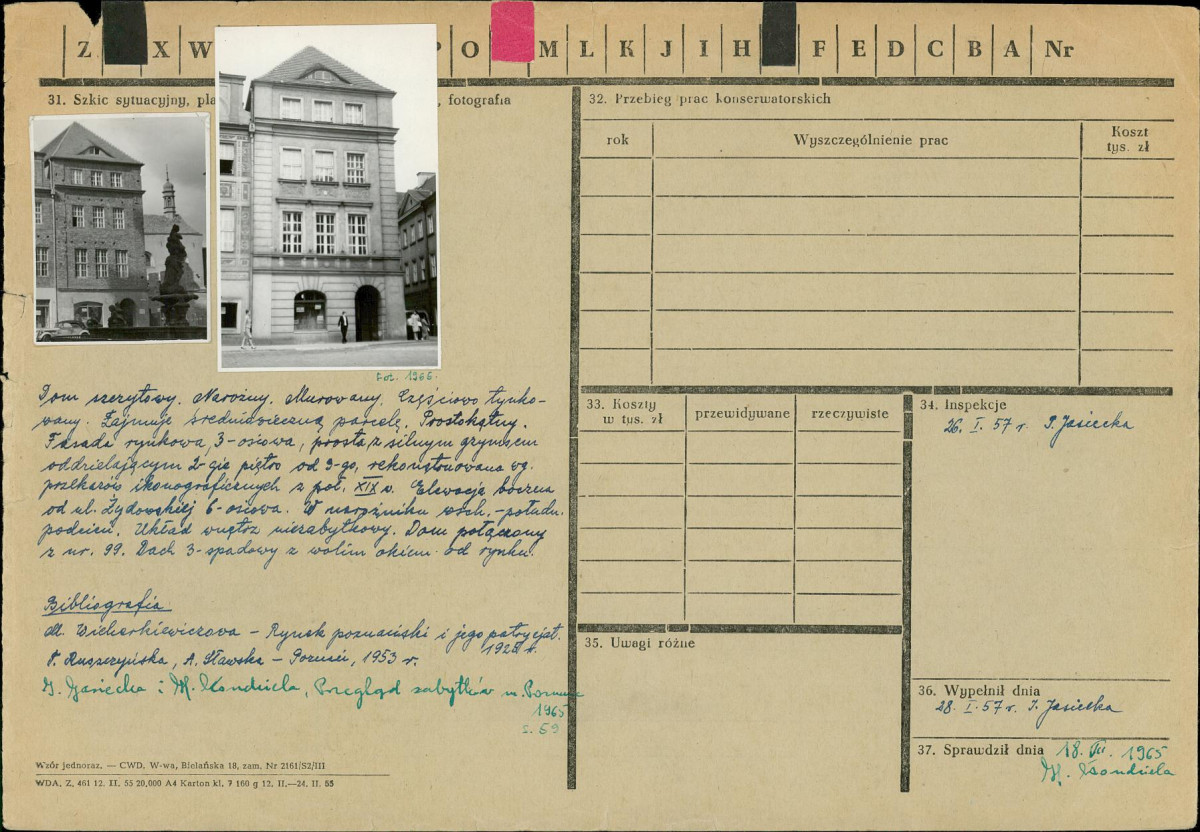 Z X W P O M L K J I H F E D C B A Nr
31. Szkic sytuacyjny, pla , fotografia
fot. 1966.
Dom szczytowy. Narożny. Murowany. Częściowo tynko-
wany. Zajmuje średniowieczną parcelę. Prostokątny.
Fasada rynkowa, 3-osiowa, prosta, z silnym gzymsem
oddzielającym 2-gie piętro od 3-go, rekonstruowana wg.
przekazów ikonograficznych z poł. XIX w. Elewacja boczna
od ul. Żydowskiej 6-osiowa. W narożniku wsch.-połudn.
podcień. Układ wnętrz niezabytkowy. Dom połączony
z nr. 99. Dach 3-spadowy z wolim okiem od rynku.
Bibliografia:
M. Wicherkiewiczowa – Rynek poznański i jego patrycjat.
1925 r.
T. Ruszczyńska, A. Sławska – Poznań, 1953 r.
I. Jasiecka i M. Kondziela, Przegląd zabytków m. Poznania
1965
s. 59
Wzór jednoraz. — CWD, W-wa, Bielańska 18, zam. Nr 2161/S2/III
WDA. Z. 461 12. II. 55 20,000 A4 Karton kl. 7 160 g 12. II.—24. II. 55
32. Przebieg prac konserwatorskich
rok Wyszczególnienie prac Koszt
tys. zł
33. Koszty
w tys. zł
przewidywane rzeczywiste
34. Inspekcje
26. I. 57 r. I. Jasiecka
35. Uwagi różne
36. Wypełnił dnia
28. I. 57 r. I. Jasiecka
37. Sprawdził dnia 18. VII. 1965
M. Kondziela